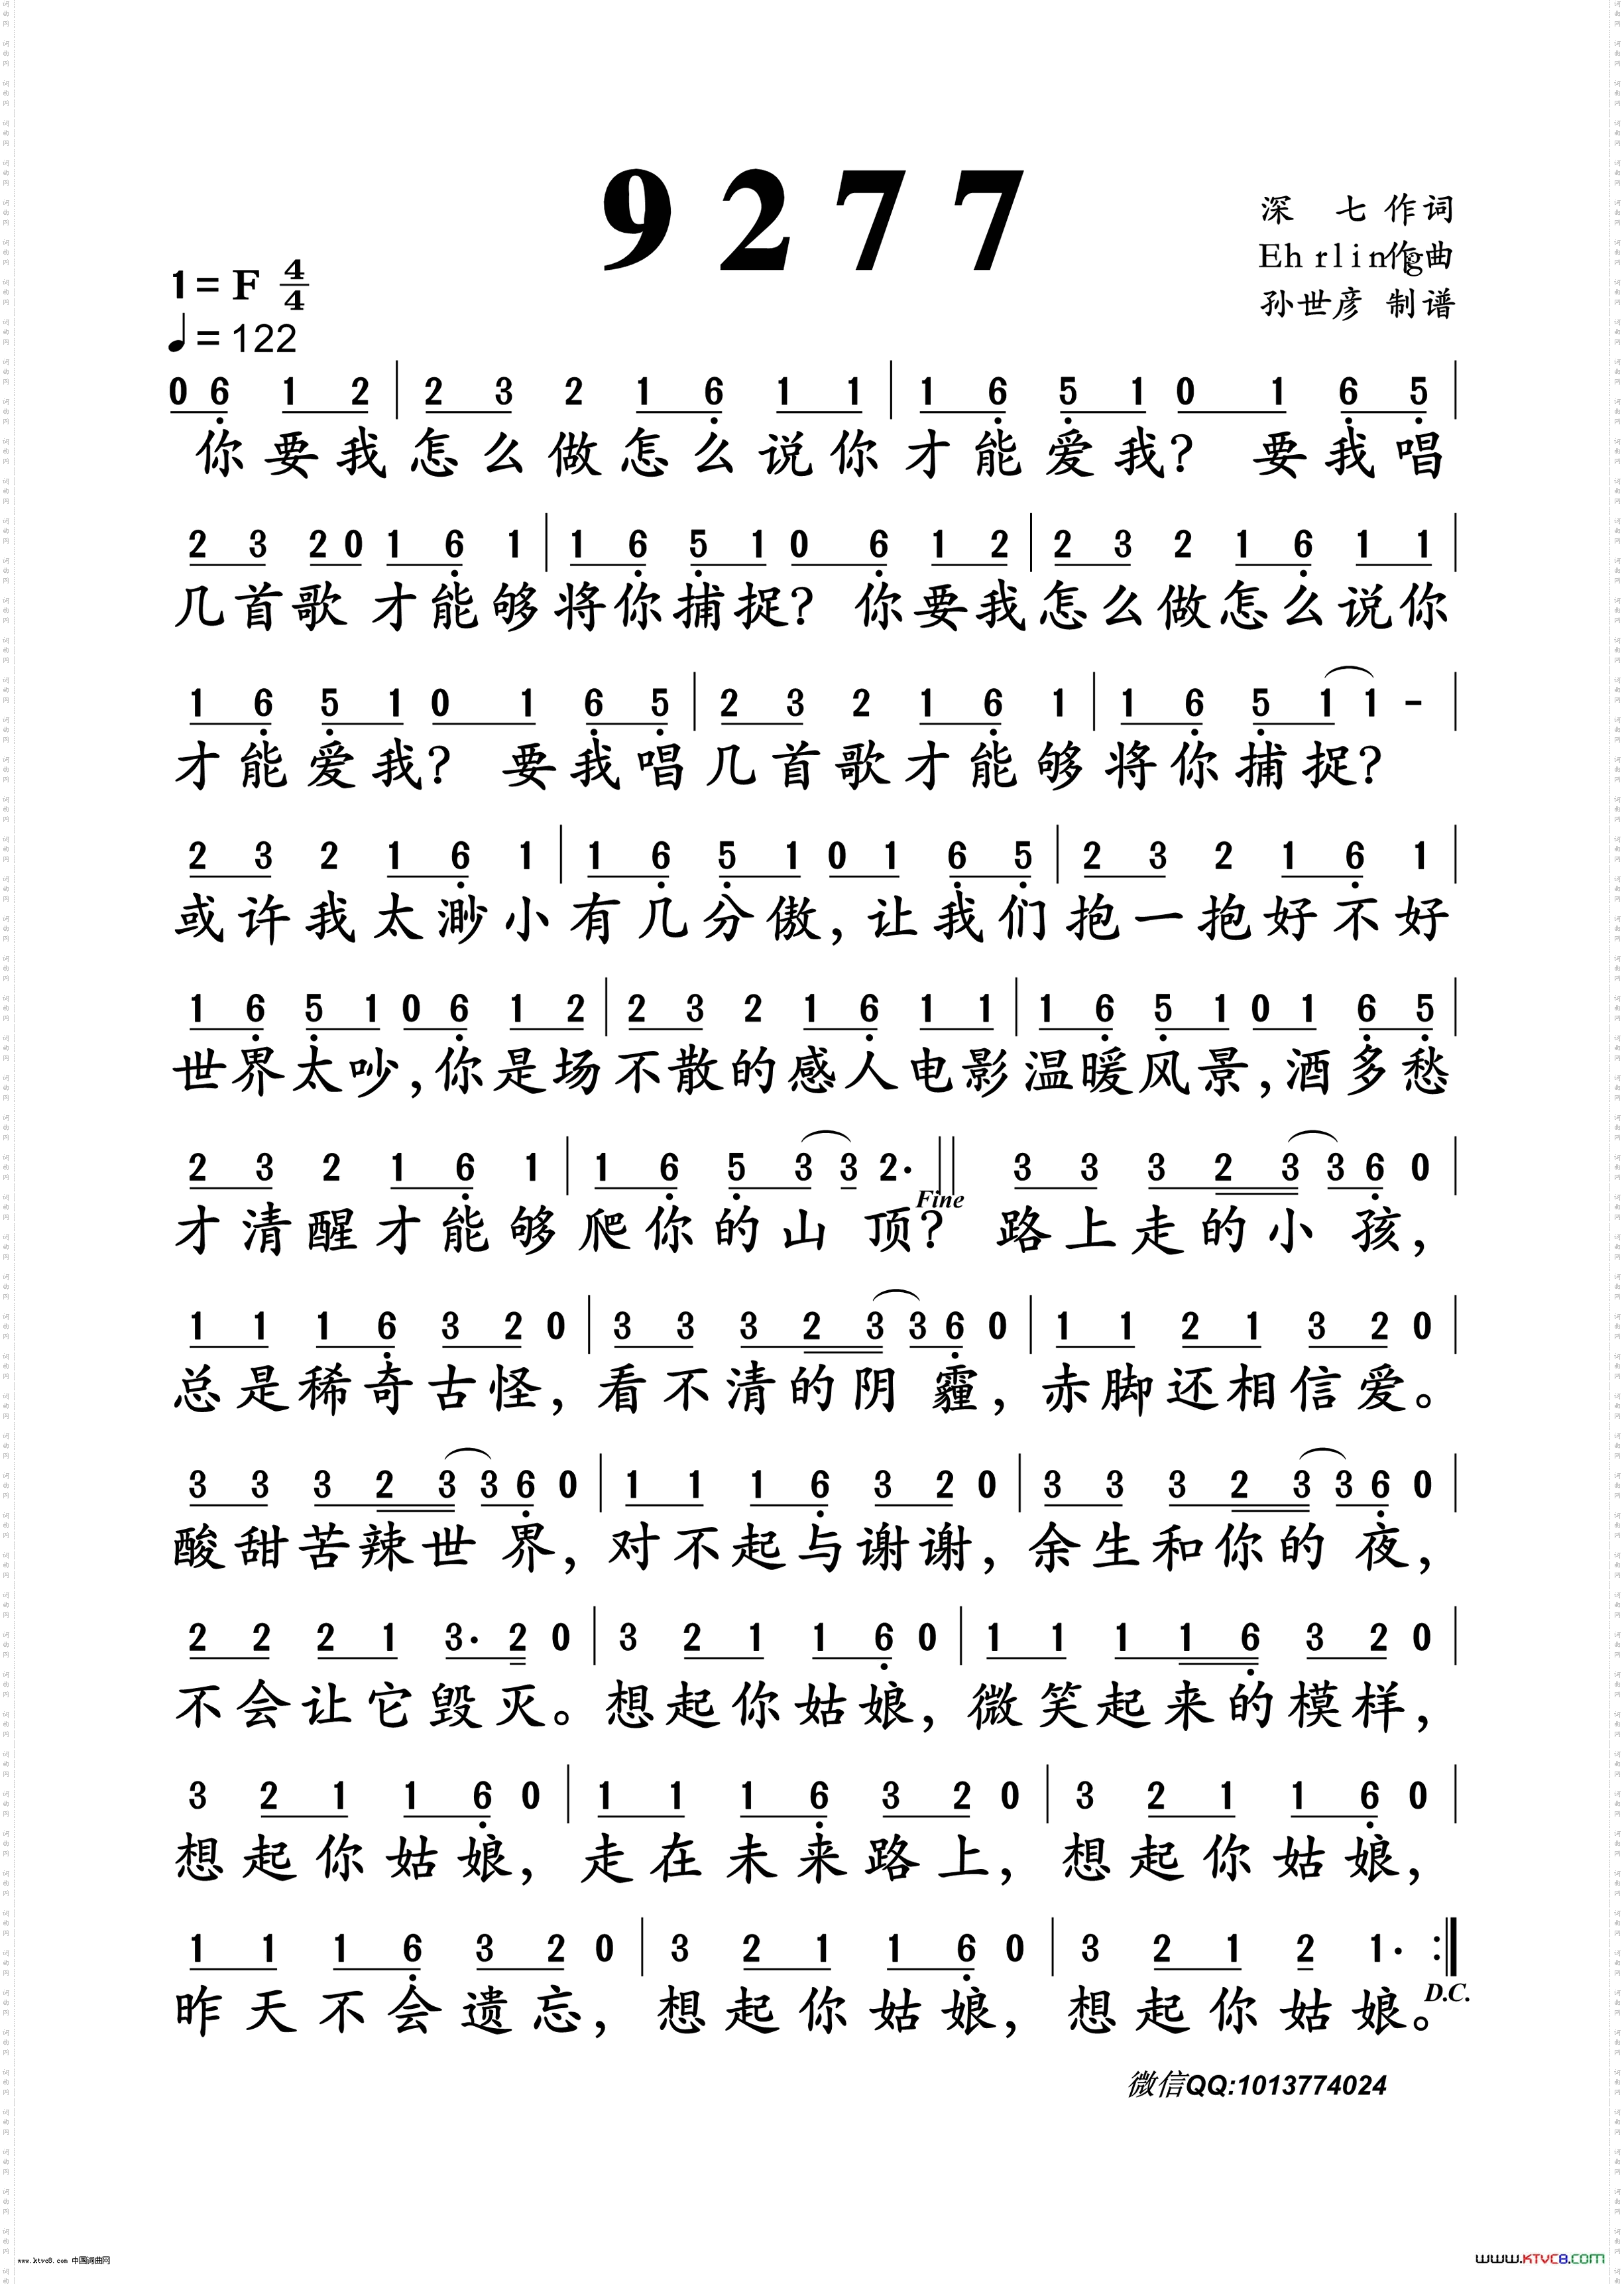 9277
深 七 作词
Ehrling作曲
孙世彦 制谱
1= F 4/4
♩= 122
0 6 1 2 | 2 3 2 1 6 1 1 | 1 6 5 1 0 1 6 5 |
你要我怎么做怎么说你才能爱我? 要我唱
2 3 2 0 1 6 1 | 1 6 5 1 0 6 1 2 | 2 3 2 1 6 1 1 |
几首歌 才能够将你捕捉? 你要我怎么做怎么说你
1 6 5 1 0 1 6 5 | 2 3 2 1 6 1 | 1 6 5 1 1 - |
才能爱我? 要我唱几首歌才能够将你捕捉?
2 3 2 1 6 1 | 1 6 5 1 0 1 6 5 | 2 3 2 1 6 1 |
或许我太渺小有几分傲,让我们抱一抱好不好
1 6 5 1 0 6 1 2 | 2 3 2 1 6 1 1 | 1 6 5 1 0 1 6 5 |
世界太吵,你是场不散的感人电影温暖风景,酒多愁
2 3 2 1 6 1 | 1 6 5 3 3 2· || 3 3 3 2 3 3 6 0 |
Fine
才清醒才能够爬你的山 顶? 路上走的小 孩,
1 1 1 6 3 2 0 | 3 3 3 2 3 3 6 0 | 1 1 2 1 3 2 0 |
总是稀奇古怪,看不清的阴 霾,赤脚还相信爱。
3 3 3 2 3 3 6 0 | 1 1 1 6 3 2 0 | 3 3 3 2 3 3 6 0 |
酸甜苦辣世 界,对不起与谢谢,余生和你的 夜,
2 2 2 1 3· 2 0 | 3 2 1 1 6 0 | 1 1 1 1 6 3 2 0 |
不会让它毁灭。想起你姑娘,微笑起来的模样,
3 2 1 1 6 0 | 1 1 1 6 3 2 0 | 3 2 1 1 6 0 |
想起你姑娘,走在未来路上,想起你姑娘,
1 1 1 6 3 2 0 | 3 2 1 1 6 0 | 3 2 1 2 1· :|
D.C.
昨天不会遗忘,想起你姑娘,想起你姑娘。
微信QQ:1013774024
www.ktvc8.com 中国词曲网
www.KTVC8.com